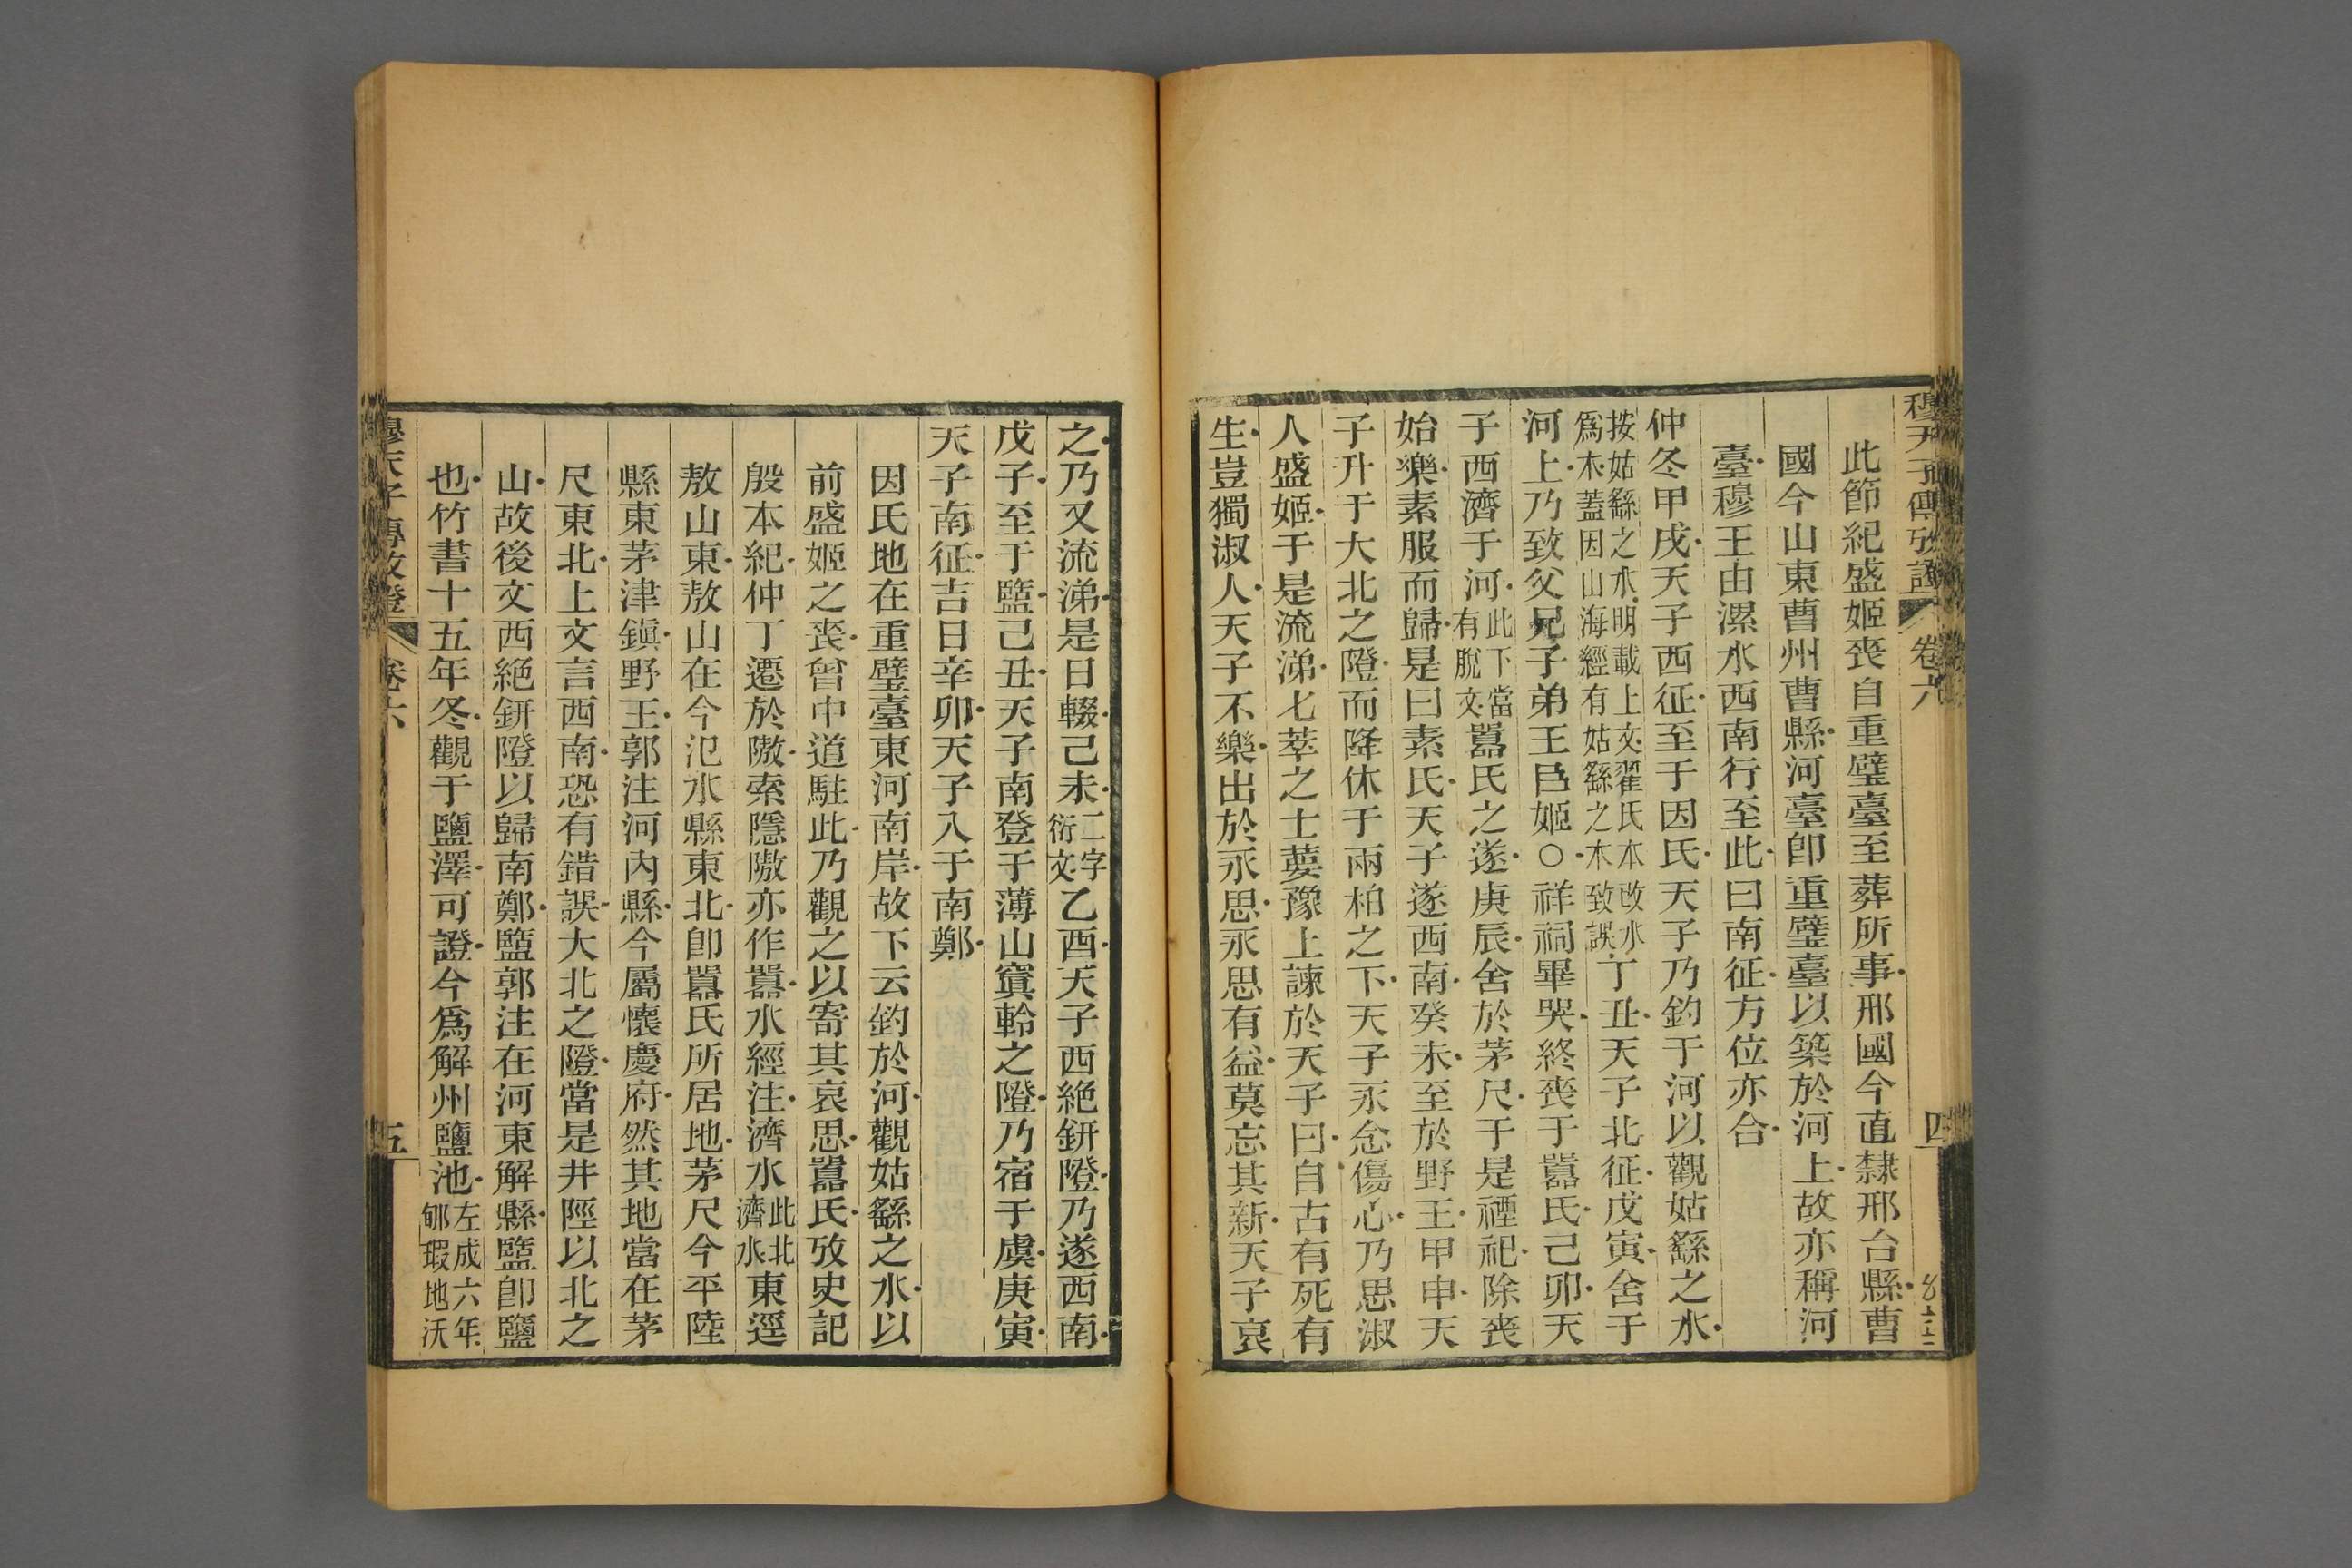 穆天子傳攷證 卷六 四
此節紀盛姬喪自重璧臺至葬所事邢國今直隸邢台縣曹
國今山東曹州曹縣河臺卽重璧臺以築於河上故亦稱河
臺穆王由漯水西南行至此曰南征方位亦合
仲冬甲戌天子西征至于因氏天子乃釣于河以觀姑繇之水
按姑繇之水明載上文翟氏本改水
爲木蓋因山海經有姑繇之木致誤
丁丑天子北征戊寅舍于
河上乃致父兄子弟王臣姬○祥祠畢哭終喪于嚻氏己卯天
子西濟于河
此下當
有脫文
嚻氏之遂庚辰舍於茅尺于是禋祀除喪
始樂素服而歸是曰素氏天子遂西南癸未至於野王甲申天
子升于大北之隥而降休于兩柏之下天子永念傷心乃思淑
人盛姬于是流涕七萃之士葽豫上諫於天子曰自古有死有
生豈獨淑人天子不樂出於永思永思有益莫忘其新天子哀
之乃又流涕是日輟己未
二字
衍文
乙酉天子西絕鈃隥乃遂西南
戊子至于盬己丑天子南登于薄山窴軨之隥乃宿于虞庚寅
天子南征吉日辛卯天子入于南鄭
因氏地在重璧臺東河南岸故下云釣於河觀姑繇之水以
前盛姬之喪曾中道駐此乃觀之以寄其哀思嚻氏攷史記
殷本紀仲丁遷於隞索隱隞亦作嚻水經注濟水
此北
濟水
東逕
敖山東敖山在今氾水縣東北卽嚻氏所居地茅尺今平陸
縣東茅津鎭野王郭注河內縣今屬懷慶府然其地當在茅
尺東北上文言西南恐有錯誤大北之隥當是井陘以北之
山故後文西絕鈃隥以歸南鄭盬郭注在河東解縣盬卽鹽
也竹書十五年冬觀于鹽澤可證今爲解州鹽池
左成六年
郇瑕地沃
穆天子傳攷證 卷六 五